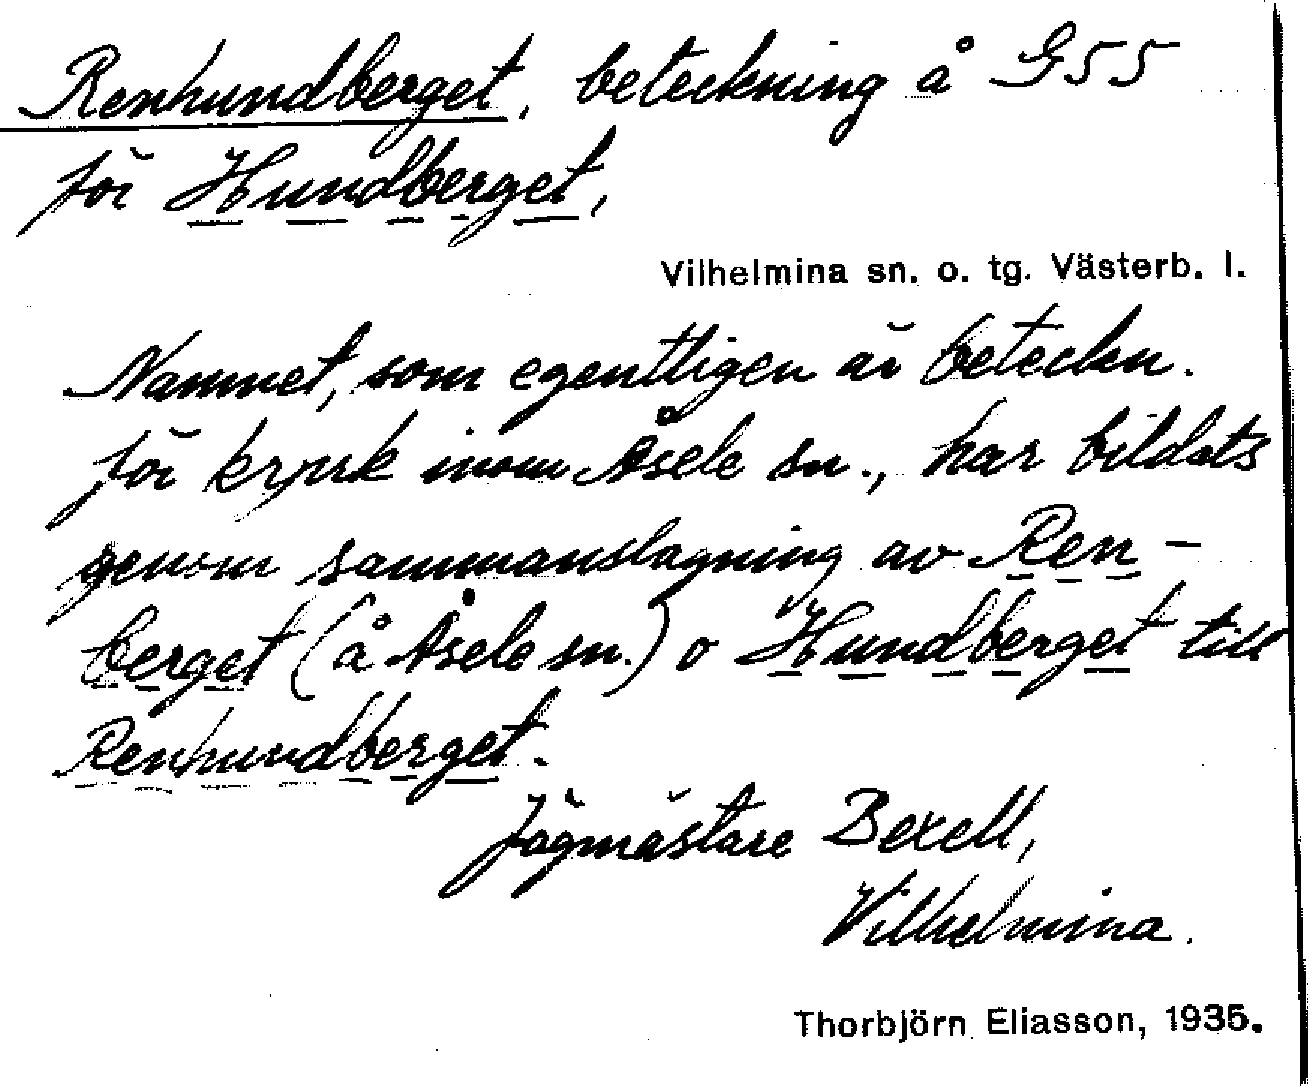 Renhundberget, beteckning å G55
för Hundberget,
Vilhelmina sn. o. tg. Västerb. l.
Namnet, som egentligen är beteckn.
för krpark inom Åsele sn., har bildats
genom sammanslagning av Ren-
berget (å Åsele sn.) o Hundberget till
Renhundberget.
Jägmästare Bexell,
Vilhelmina.
Thorbjörn Eliasson, 1935.